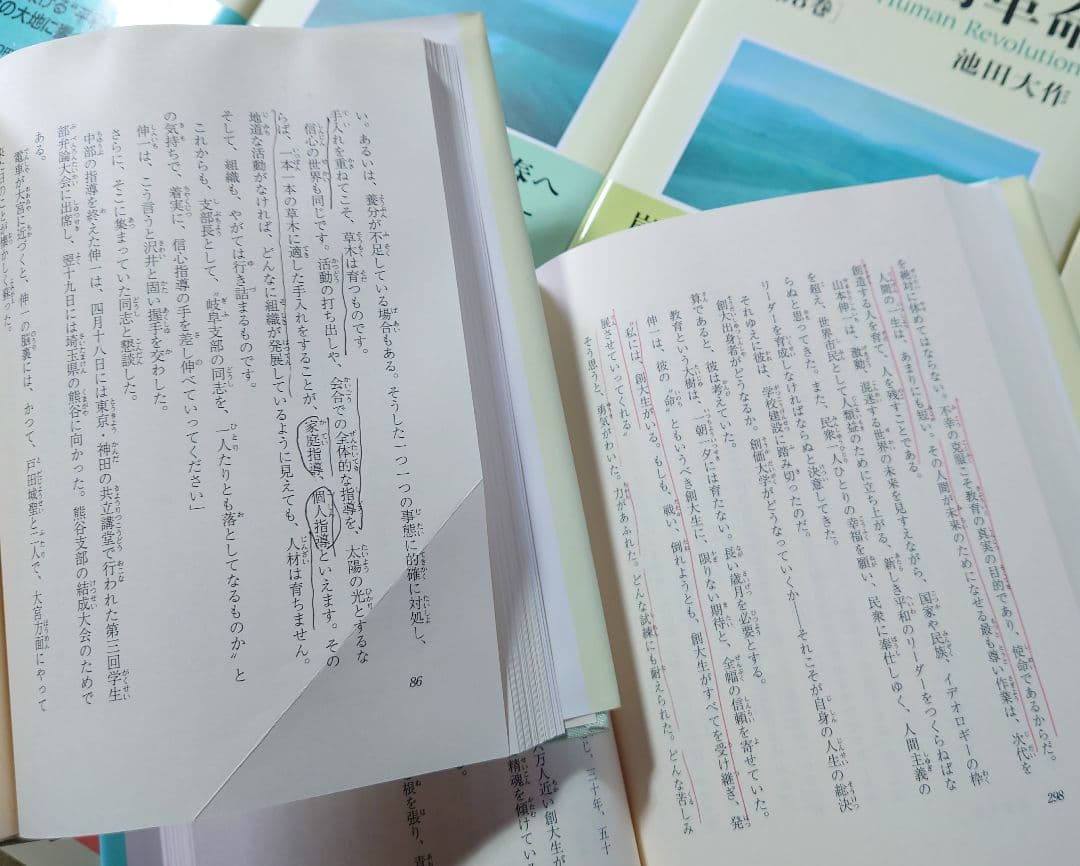 い。あるいは、養分が不足している場合もある。そうした一つ一つの事態に的確に対処し、
手入れを重ねてこそ、草木は育つものです。
信心の世界も同じです。活動の打ち出しや、会合での全体的な指導を、太陽の光とするな
らば、一本一本の草木に適した手入れをすることが、家庭指導、個人指導といえます。その
地道な活動がなければ、どんなに組織が発展しているように見えても、人材は育ちません。
そして、組織も、やがては行き詰まるものです。
これからも、支部長として、〝岐阜支部の同志を、一人たりとも落としてなるものか〟と
の気持ちで、着実に、信心指導の手を差し伸べていってください」
伸一は、こう言うと沢井と固い握手を交わした。
さらに、そこに集まっていた同志と懇談した。
中部の指導を終えた伸一は、四月十八日には東京・神田の共立講堂で行われた第三回学生
部弁論大会に出席し、翌十九日には埼玉県の熊谷に向かった。熊谷支部の結成大会のためで
ある。
電車が大宮に近づくと、伸一の脳裏には、かつて、戸田城聖と二人で、大宮方面にやって
86
を絶対に休めてはならない。不幸の克服こそ教育の真実の目的であり、使命であるからだ。
人間の一生は、あまりにも短い。その人間が未来のためになせる最も尊い作業は、次代を
創造する人を育て、人を残すことである。
山本伸一は、激動、混迷する世界の未来を見すえながら、国家や民族、イデオロギーの枠
を超え、世界市民として人類益のために立ち上がる、新しき平和のリーダーをつくらねばな
らぬと思ってきた。また、民衆一人ひとりの幸福を願い、民衆に奉仕しゆく、人間主義の
リーダーを育成しなければならぬと決意してきた。
それゆえに彼は、学校建設に踏み切ったのだ。
創大出身者がどうなるか。創価大学がどうなっていくか――それこそが自身の人生の総決
算であると、彼は考えていた。
教育という大樹は、一朝一夕には育たない。長い歳月を必要とする。
伸一は、彼の〝命〟ともいうべき創大生に、限りない期待と、全幅の信頼を寄せていた。
〝私には、創大生がいる。もしも、戦い、倒れようとも、創大生がすべてを受け継ぎ、発
展させていってくれる〟
そう思うと、勇気がわいた。力があふれた。どんな試練にも耐えられた。どんな苦しみ
298
革命
Human Revolution
池田大作
春へ
の大地に
万人近い創大生が
精魂を傾けてい
根を張り、青
三十年、五十